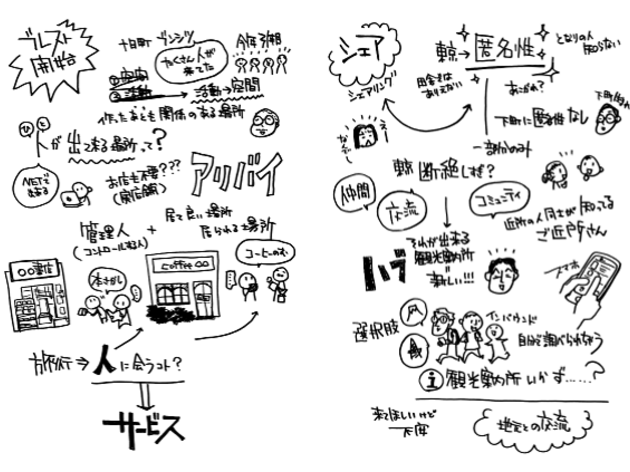 ブレスト
開始
十日町 ブンジツ
たくさん人が
来てた
今年3期
① 空内
② 活動
活動→空間
作ったあとも関係のある場所
ひと
が出て来る場所って?
NETで
まわる
お店も不要???
(実店舗)
アリバイ
管理人
(コントロールする人)
+
居て良い場所
居られる場所
コーヒーのむ
○○書店
本さがし
coffee ○○
旅行⇒人に会うコト?
サービス
シェア
シェアリング
東京→匿名性
となりの人
知らない
田舎では
ありえない
あこがれ?
下町に匿名性なし
下町的
一部かのみ
え〜
なんで〜
東京 断絶しすぎ?
仲間
交流
コミュニティ
近所の人同士が知ってる
ご近所さん
ハブ
それが出来る
観光案内所
新しい!!!
スマホ
選択肢
インバウンド
自分で調べられちゃう
i 観光案内所いかず……?
来てほしいけど
不安
地元との交流